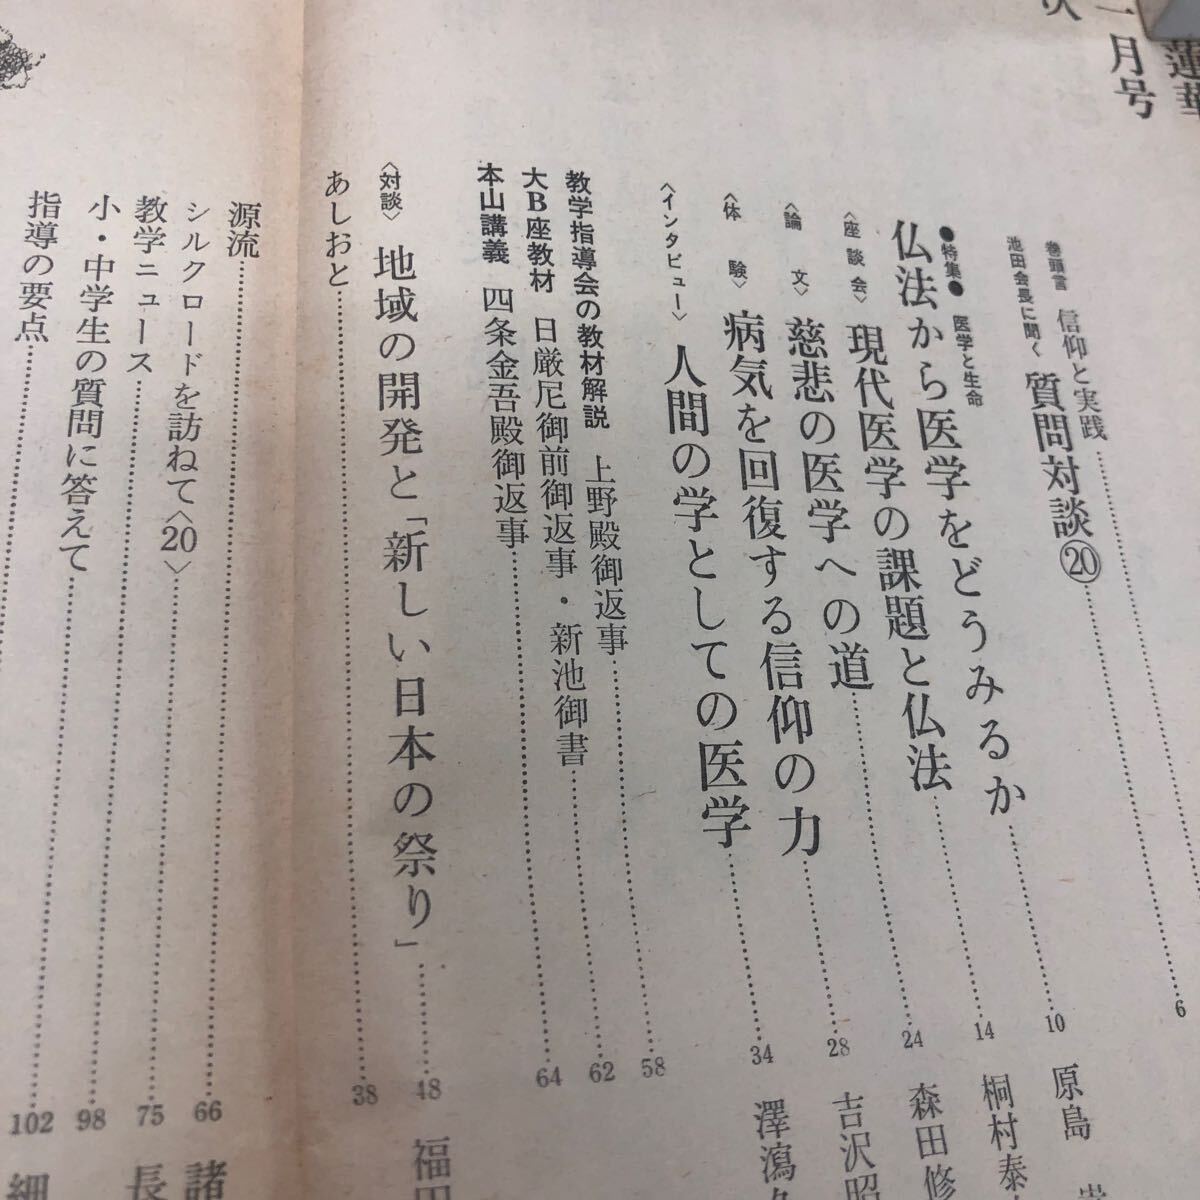 蓮華
月号
巻頭言 信仰と実践
池田会長に聞く 質問対談⑳ 6
●特集● 医学と生命
仏法から医学をどうみるか 10 原島
〈座談会〉 現代医学の課題と仏法 14 桐村泰
〈論文〉 慈悲の医学への道 24 森田修
〈体験〉 病気を回復する信仰の力 28 吉沢昭
〈インタビュー〉 人間の学としての医学 34 澤瀉久
教学指導会の教材解説 上野殿御返事 58
大B座教材 日厳尼御前御返事・新池御書 62
本山講義 四条金吾殿御返事 64
〈対談〉 地域の開発と「新しい日本の祭り」 48 福田
あしおと 38
源流 66 諸
シルクロードを訪ねて〈20〉 75 長
教学ニュース 98
小・中学生の質問に答えて 102 細
指導の要点